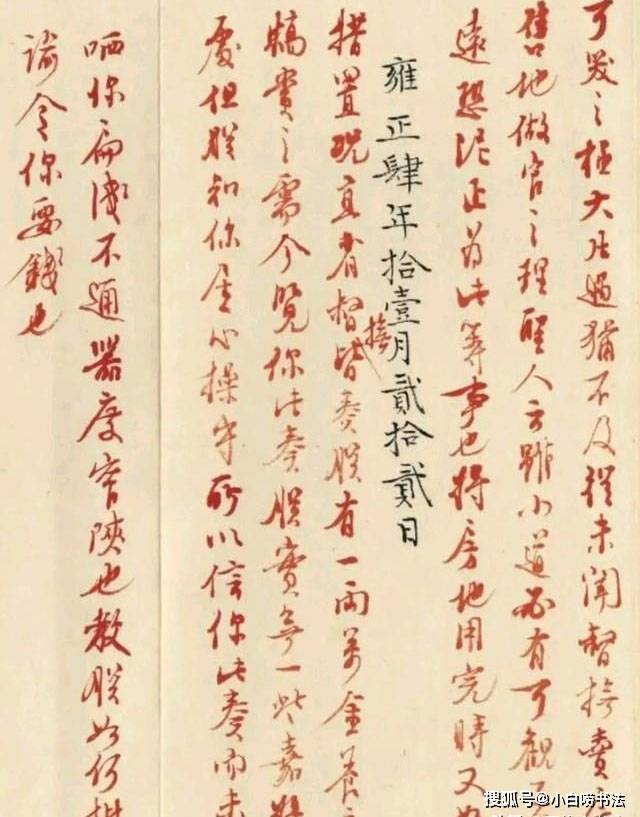 可發之極大凡過猶不及從未聞督撫賣
售地做官之理聖人云雖小道必有可觀
遠恐泥正為此等事也將房地用完時又
雍正肆年拾壹月貳拾貳日
措置現直省督撫皆奏朕有一兩萬金養
犒賞之需今覽你此奏朕實無一些嘉
處但朕知你居心操守所以信你此奏而未
哂你扁淺不通器度窄陝也教朕如何
諭令你要錢也
搜狐号@小白唠书法